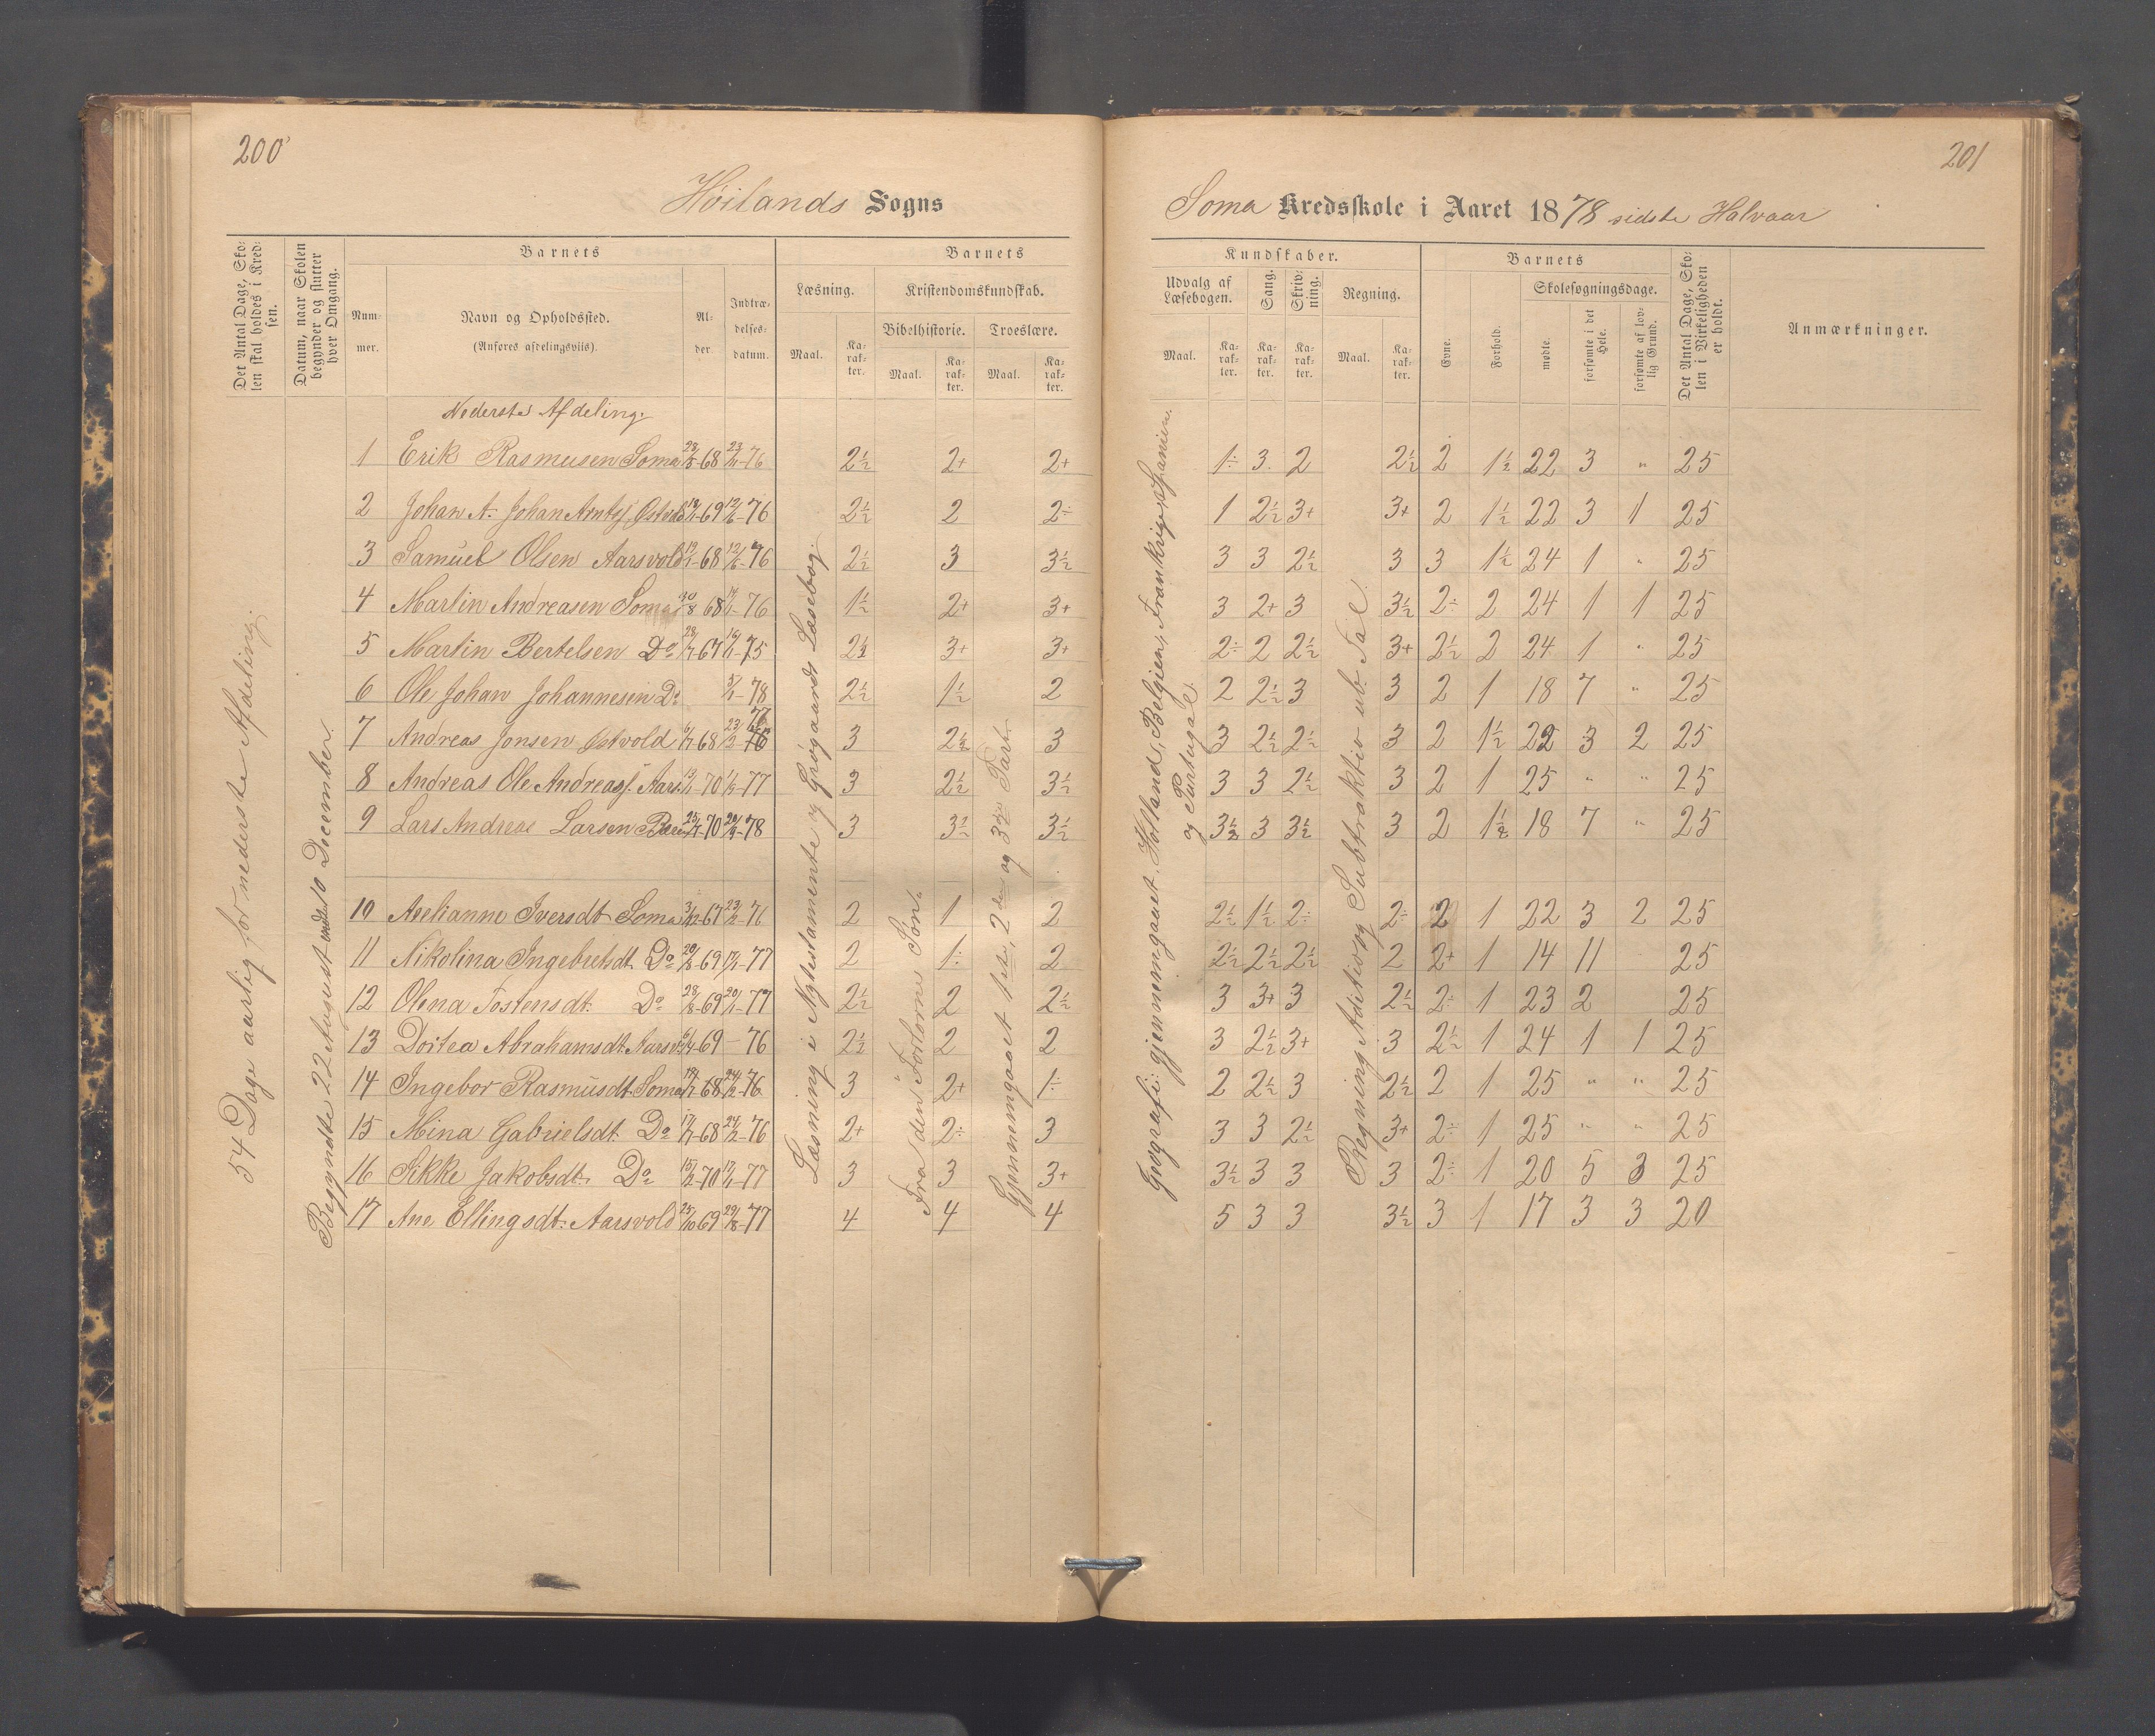 200
201
Høilands Sogns
Soma Kredsskole i Aaret 1878 sidste Halvaar
Det Antal Dage, Skolen skal holdes i Kredsen.
Datum, naar Skolen begynder og slutter hver Omgang.
Barnets
Nummer.
Navn og Opholdssted.
(Anføres afdelingsviis).
Alder.
Indtrædelsesdatum.
Barnets
Læsning.
Kristendomskundskab.
Bibelhistorie. Troeslære.
Maal. Karakter. Maal. Karakter. Maal. Karakter.
Kundskaber.
Udvalg af Læsebogen. Sang. Skrivning. Regning.
Maal. Karakter. Karakter. Karakter. Maal. Karakter.
Barnets
Evne. Forhold.
Skolesøgningsdage.
mødte. forsømte i det Hele. forsømte af lovlig Grund.
Det Antal Dage, Skolen i Virkeligheden er holdt.
Anmærkninger.
54 Dage aarlig for nederste Afdeling.
Begyndte 22 August endte 10 December.
Læsning i Nytestamente og Grøgaards Læsebog.
Fra den "Fortorne Søn".
Gjennemgaaet 1ste, 2den og 3die Part.
Geografi: gjennemgaaet. Holland, Belgien, Frankrige, Spanien
og Purtugal.
Regning Adition og Subtraktio ub. Tal.
Nederste Afdeling.
1 Erik Rasmusen Soma 68 76 2½ 2+ 2+ 1÷ 3 2 2½ 2 1½ 22 3 " 25
2 Johan A. Johan Arntsj. Østvold 69 12/6-76 2½ 2 2÷ 1 2½ 3+ 3+ 2 1½ 22 3 1 25
3 Samuel Olsen Aarsvold 68 12/6-76 2½ 3 3½ 3 3 2½ 3 3 1½ 24 1 " 25
4 Martin Andreasen Soma 30/8 68 76 1½ 2+ 3+ 3 2+ 3 3½ 2÷ 2 24 1 1 25
5 Martin Bertelsen Do 67 75 2½ 3+ 3+ 2÷ 2 2½ 3+ 2½ 2 24 1 " 25
6 Ole Johan Johannesen Do 78 2½ 1½ 2 2 2½ 3 3 2 1 18 7 " 25
7 Andreas Jonsen Østvold 68 23/2-77 3 2½ 3 3 2½ 2½ 3 2 1½ 22 3 2 25
8 Andreas Ole Andreasj. Aars. 70 77 3 2½ 3½ 3 3 2½ 3 2 1 25 " " 25
9 Lars Andreas Larsen 70 78 3 3½ 3½ 3½ 3 3½ 3 2 1½ 18 7 " 25
10 Aelianne Iversdt. Soma 67 23/2-76 2 1 2 2½ 1½ 2÷ 2÷ 2 1 22 3 2 25
11 Nikolina Ingebretsdt. Do 69 77 2 1÷ 2 2½ 2½ 2½ 2 2+ 1 14 11 25
12 Olena Tostensdt. Do 28/8-69 20/1-77 2½ 2 2½ 3 3+ 3 2½ 2÷ 1 23 2 25
13 Dortea Abrahamsdt. Aarsv. 69 – 76 2½ 2 2 3 2½ 3+ 3 2½ 1 24 1 1 25
14 Ingebor Rasmusdt. Soma 68 24/2-76 3 2+ 1÷ 2 2½ 3 2½ 2 1 25 " " 25
15 Mina Gabrielsdt. Do 68 24/2-76 2+ 2÷ 3 3 3 2½ 3+ 2÷ 1 25 " " 25
16 Sikke Jakobsdt. Do 70 77 3 3 3+ 3½ 3 3 3 2÷ 1 20 5 3 25
17 Ane Ellingsdt. Aarsvold 69 77 4 4 4 5 3 3 3½ 3 1 17 3 3 20